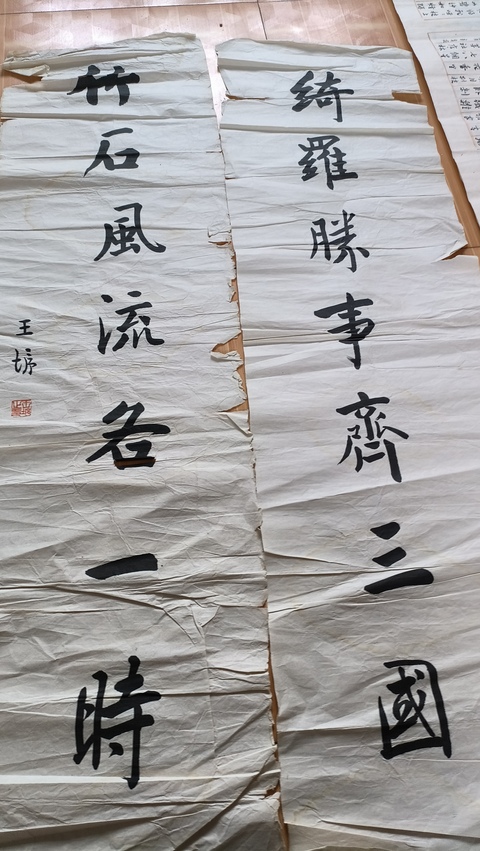 綺羅勝事齊三國
竹石風流各一時
王